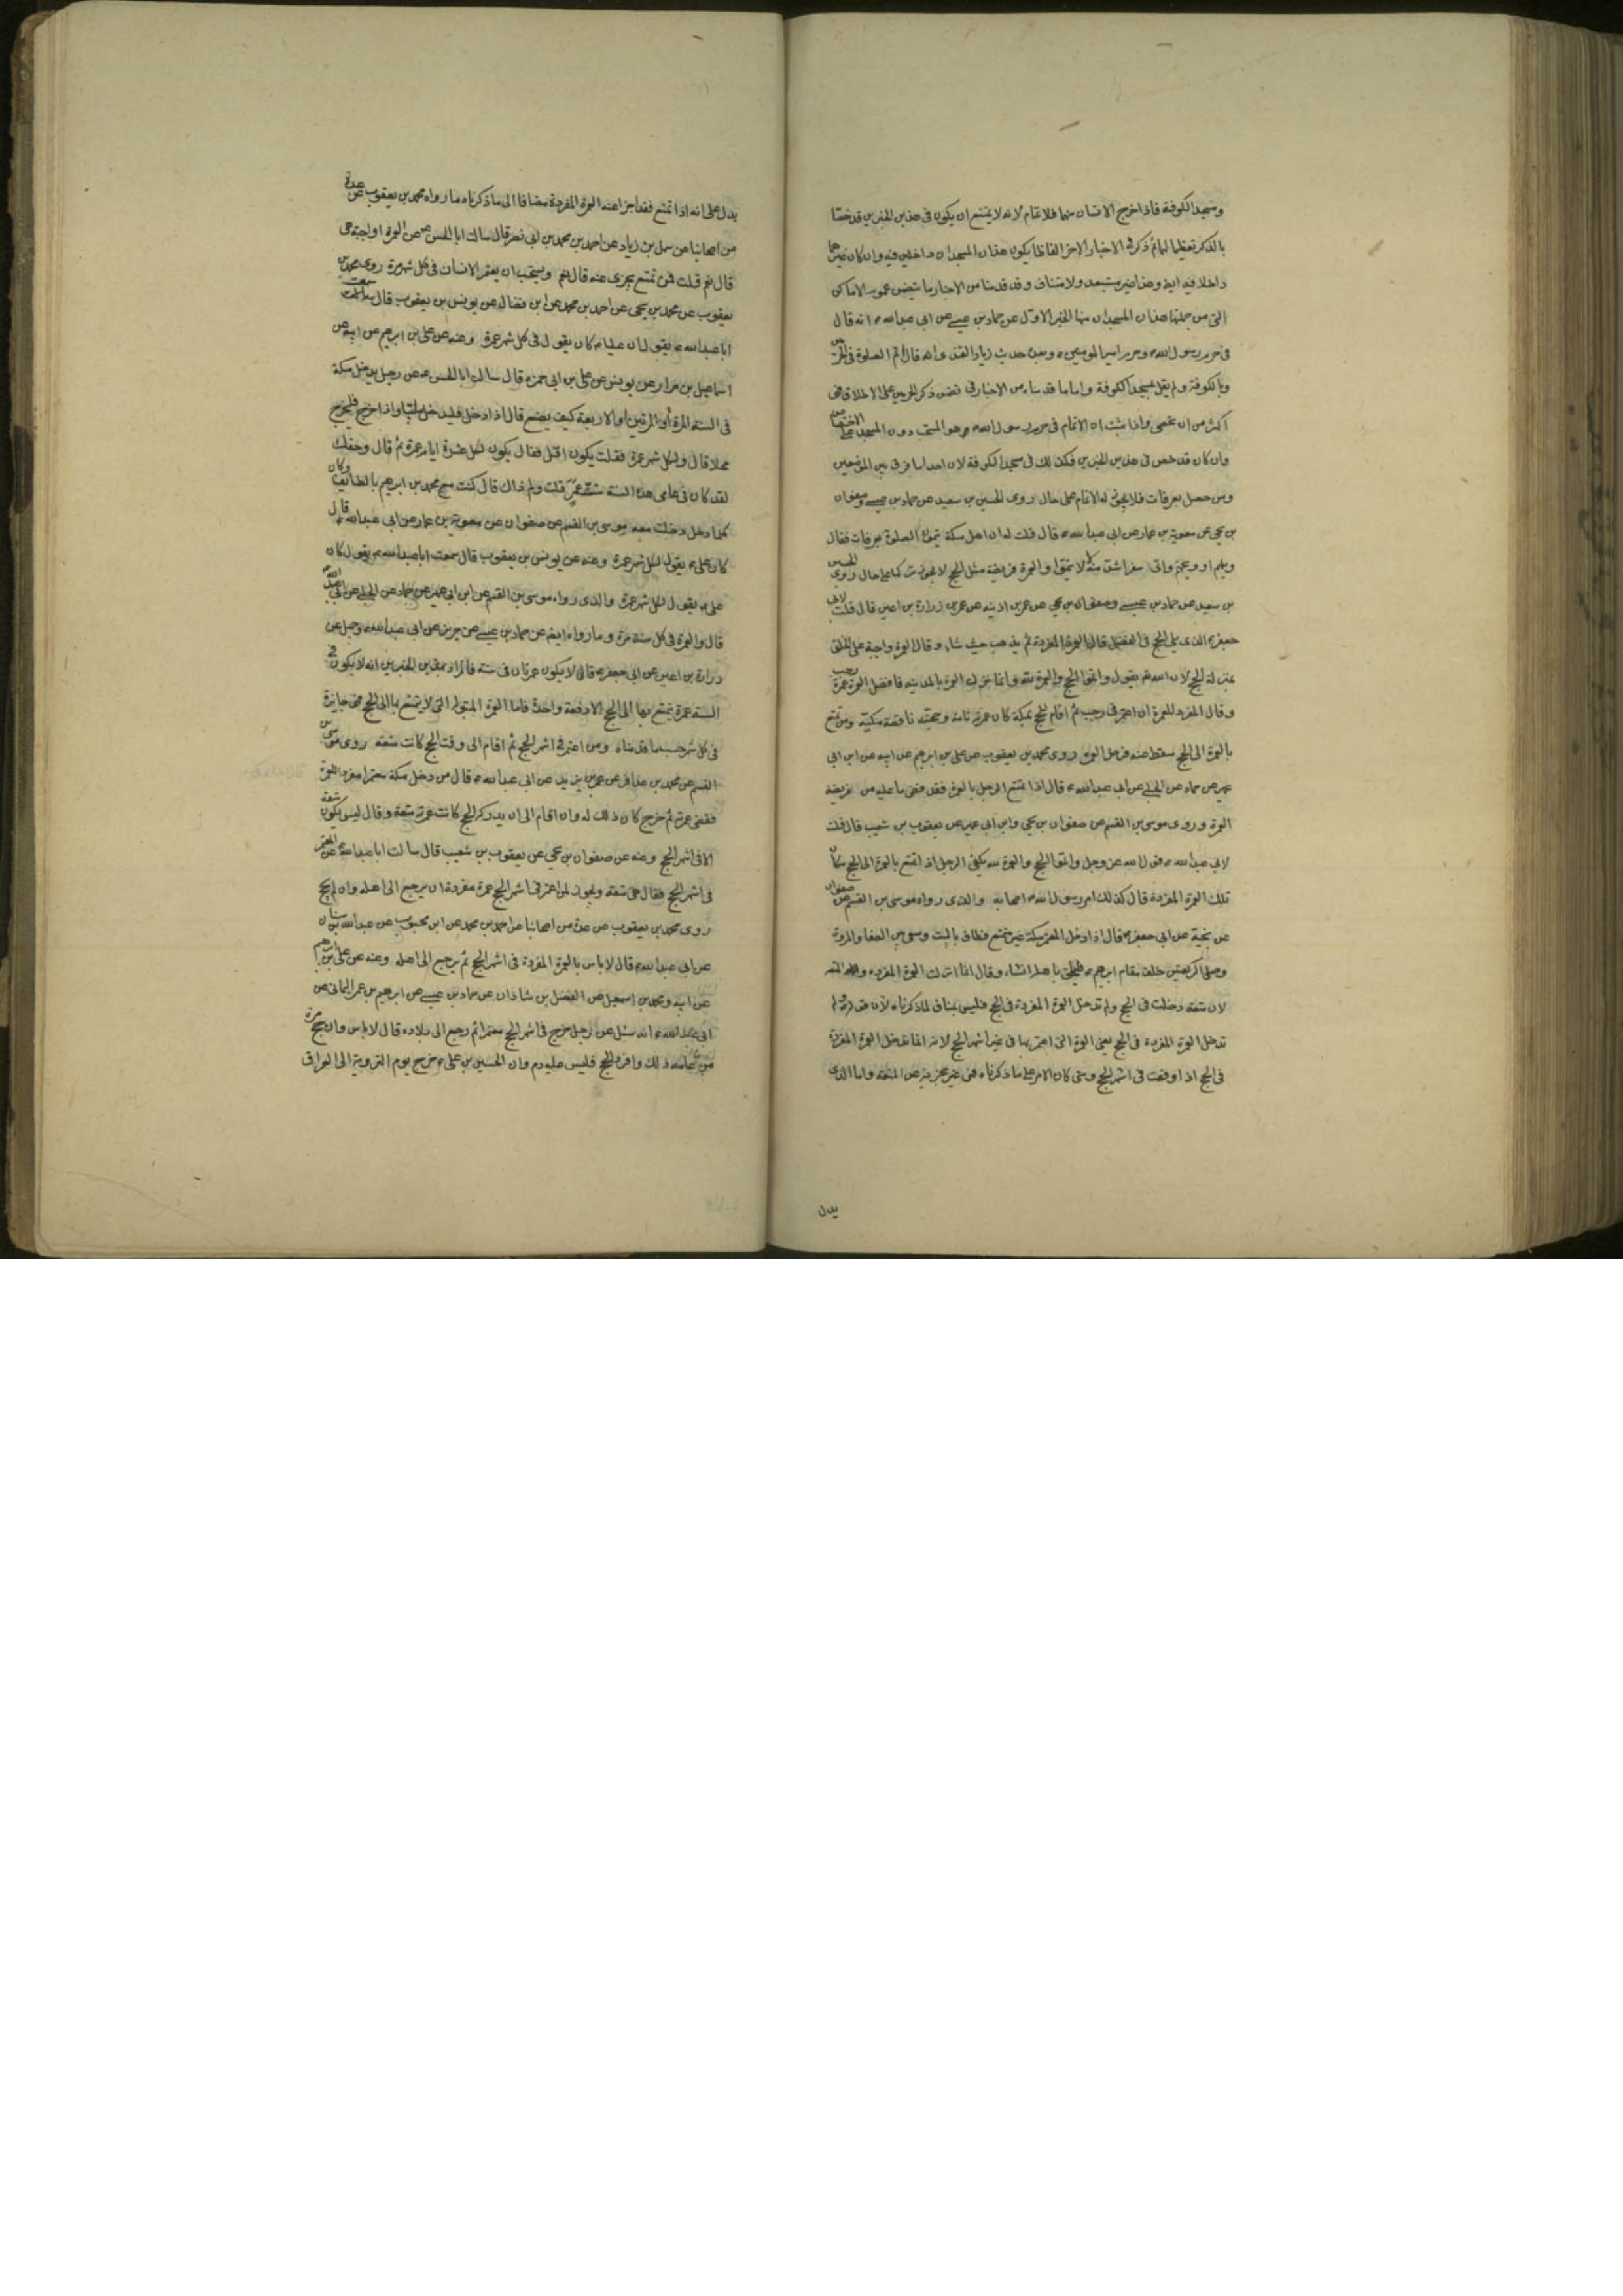 ومسجد الكوفة فاذا خرج الانسان منهما فلا تمام لانه لا يمتنع ان يكون في هذين الخبرين قد خصتا
بالذكر تعظيما لهما ثم ذكر في الاخبار الاخر الفاظا يكون هذان المسجدان داخلين فيه وان كان غيرهما
داخلا فيه ايضا وهذا غير مستبعد ولا متناف وقد قدمنا من الاخبار ما يتضمن عموم الاماكن
التي من جملتها هذان المسجدان منها الخبر الاول عن حماد بن عيسى عن ابي عبدالله ع انه قال
في حرم رسول الله ص وحرم امير المومنين ع وبعده حديث زياد القندى انه قال اتم الصلوة في الحرمين
وبالكوفة ولم يقل مسجد الكوفة واما ما قدمناه من الاخبار في تضمن ذكر الحرمين على الاطلاق فهي
اكثر من ان تحصى واذا ثبت ان الاتمام في حرم رسول الله ص هو المستحب دون المسجد على الاختصاص
وان كان قد خص في هذين الخبرين فكذلك في مسجد الكوفة لان احدا ما فرق بين الموضعين
ومن حصل بعرفات فلا يجوز له الاتمام على حال روى الحسين بن سعيد عن حماد بن عيسى وصفوان
بن يحيى عن معوية بن عمار عن ابي عبدالله ع قال قلت له ان اهل مكة يتمون الصلوة بعرفات فقال
ويلهم او ويحهم واى سفر اشد منه لا تتموا والعمرة فريضة مثل الحج لا يجوز تركها على حال روى الحسين
بن سعيد عن حماد بن عيسى وصفوان بن يحيى عن عمر بن اذينه عن زرارة بن اعين قال قلت لابي
جعفر ع الذى يلى الحج في الفضل قال العمرة المفردة ثم يذهب حيث شاء وقال العمرة واجبة على الخلق
بمنزلة الحج لان الله تع يقول واتموا الحج والعمرة لله وانما نزلت العمرة بالمدينه فافضل العمرة عمرة رجب
وقال المفرد للعمرة ان اعتمر في رجب ثم اقام للحج بمكة كان عمرته تامة وحجته ناقصة مكية ومن تمتع
بالعمرة الى الحج سقط عنه فرض العمرة روى محمد بن يعقوب عن على بن ابرهيم عن ابيه عن ابن ابي
عمير عن حماد عن الحلبى عن ابي عبدالله ع قال اذا تمتع الرجل بالعمرة فقد قضى ما عليه من فريضة
العمرة وروى موسى بن القسم عن صفوان بن يحيى وابن ابي عمير عن يعقوب بن شعيب قال قلت
لابي عبدالله ع قول الله عز وجل واتموا الحج والعمرة لله يكفى الرجل اذا تمتع بالعمرة الى الحج مكان
تلك العمرة المفردة قال كذلك امر رسول الله ص اصحابه والذى رواه موسى بن القسم عن صفوان
عن نجية عن ابي جعفر ع قال اذا دخل المعتمر مكة غير متمتع فطاف بالبيت وسعى بين الصفا والمروة
وصلى الركعتين خلف مقام ابرهيم ع فليلحق باهله ان شاء وقال انما انزلت العمرة المفردة والمتعه
لان متعة دخلت في الحج ولم تدخل العمرة المفردة في الحج فليس بمناف لما ذكرناه لان قوله لم
تدخل العمرة المفردة في الحج يعنى العمرة التى اعتمر بها في غير اشهر الحج لانه انما تدخل العمرة المفردة
في الحج اذا وقعت في اشهر الحج ومتى كان الامر على ما ذكرناه فهى غير مجزية عن المتعه واما الذى
يدل
يدل على انه اذا تمتع فقد اجزا عنه العمرة المفردة مضافا الى ما ذكرناه ما رواه محمد بن يعقوب عن عدة
من اصحابنا عن سهل بن زياد عن احمد بن محمد بن ابي نصر قال سالت ابا الحسن ع عن العمرة اواجبة هى
قال نعم قلت فمن تمتع يجزى عنه قال نعم ويستحب ان يعتمر الانسان في كل شهر مرة روى محمد بن
يعقوب عن محمد بن يحيى عن احمد بن محمد عن ابن فضال عن يونس بن يعقوب قال سمعت
ابا عبدالله ع يقول ان عليا ع كان يقول في كل شهر عمرة وعنه عن على بن ابرهيم عن ابيه عن
اسماعيل بن مرار عن يونس عن على بن ابي حمزه قال سالت ابا الحسن ع عن رجل يدخل مكة
في السنه المرة او المرتين او الاربعة كيف يصنع قال اذا دخل فليدخل ملبيا واذا خرج فليخرج
محلا قال ولكل شهر عمرة فقلت يكون اقل فقال يكون لكل عشرة ايام عمرة ثم قال وحقك
لقد كان في عامى هذا السنة ستة عمر قلت ولم ذاك قال كنت مع محمد بن ابرهيم بالطائف وكان
كلما دخل دخلت معه موسى بن القسم عن صفوان عن معوية بن عمار عن ابي عبدالله ع قال
كان على ع يقول لكل شهر عمرة وعنه عن يونس بن يعقوب قال سمعت ابا عبدالله ع يقول كان
على ع يقول لكل شهر عمرة والذى رواه موسى بن القسم عن ابن ابي عمير عن حماد عن الحلبى عن ابي عبدالله ع
قال والعمرة في كل سنة مرة وما رواه ايضا عن حماد بن عيسى عن حريز عن ابي عبدالله ع وجميل عن
زرارة بن اعين عن ابي جعفر ع قال لا يكون عمرتان في سنة فالمراد بهذين الخبرين انه لا يكون في
السنة عمرة يتمتع بها الى الحج الا دفعة واحدة فاما العمرة المبتولة التى لا يتمتع بها الى الحج فهى جايزة
في كل شهر حسب ما قدمناه ومن اعتمر في اشهر الحج ثم اقام الى وقت الحج كانت متعة روى موسى بن
القسم عن محمد بن عذافر عن عمر بن يزيد عن ابي عبدالله ع قال من دخل مكة معتمرا مفردا للعمرة
فقضى عمرته ثم خرج كان ذلك له وان اقام الى ان يدركه الحج كانت عمرته متعة وقال ليس يكون متعة
الا في اشهر الحج وعنه عن صفوان بن يحيى عن يعقوب بن شعيب قال سالت ابا عبدالله ع عن المعتمر
في اشهر الحج فقال هى متعة ويجوز لمن اعتمر في اشهر الحج عمرة مفردة ان يرجع الى اهله وان لم يحج
روى محمد بن يعقوب عن عدة من اصحابنا عن احمد بن محمد عن ابن محبوب عن عبدالله بن سنان
عن ابي عبدالله ع قال لا باس بالعمرة المفردة في اشهر الحج ثم يرجع الى اهله وعنه عن على بن ابرهيم
عن ابيه ومحمد بن اسمعيل عن الفضل بن شاذان عن حماد بن عيسى عن ابرهيم بن عمر اليمانى عن
ابي عبدالله ع انه سئل عن رجل خرج في اشهر الحج معتمرا ثم رجع الى بلاده قال لا باس وان حج
من عامه ذلك وافرد الحج فليس عليه دم وان الحسين بن على ع خرج يوم التروية الى العراق